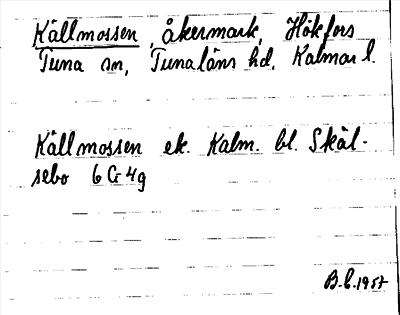 Källmossen, åkermark, Hökfors
Tuna sn, Tunaläns hd, Kalmar l.
Källmossen ek. Kalm. bl. Skäl-
sebo 6 G 4g
B.C. 1957